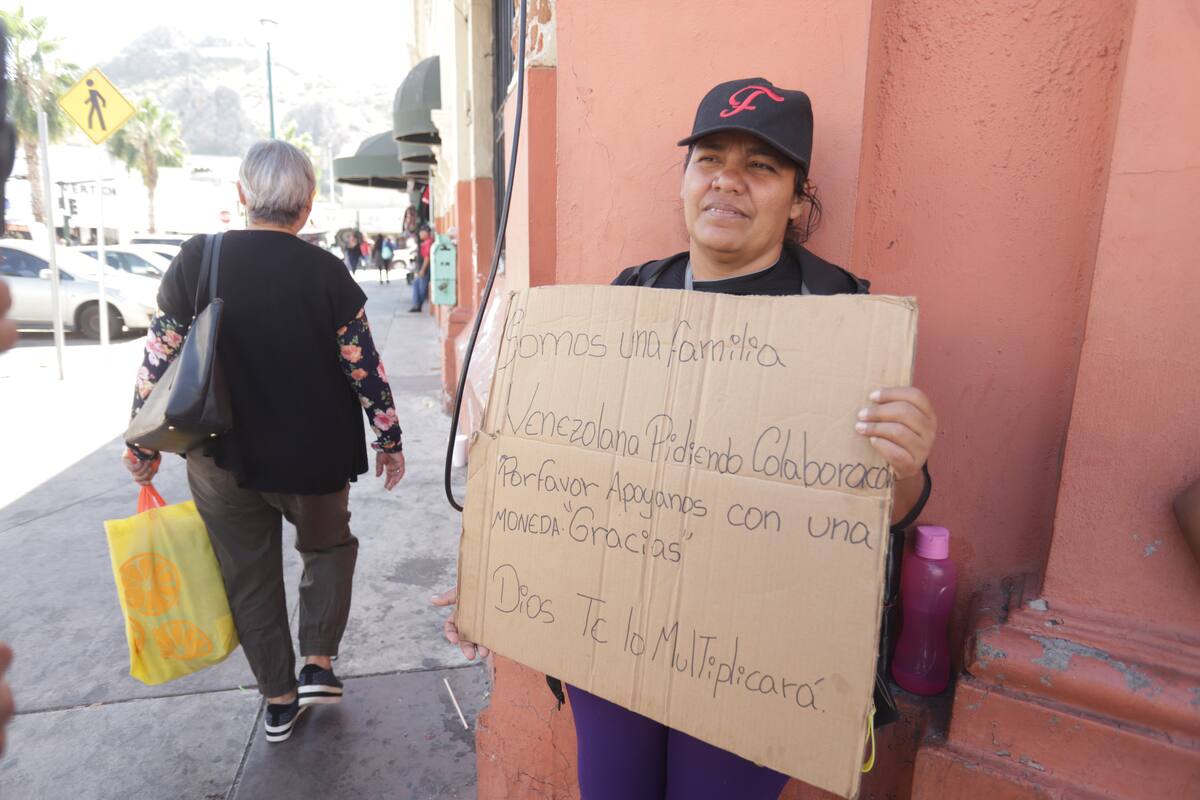 F
Somos una familia
Venezolana Pidiendo Colaboraco
"Por favor Apoyanos con una
MONEDA." Gracias"
Dios Te lo Multiplicará.